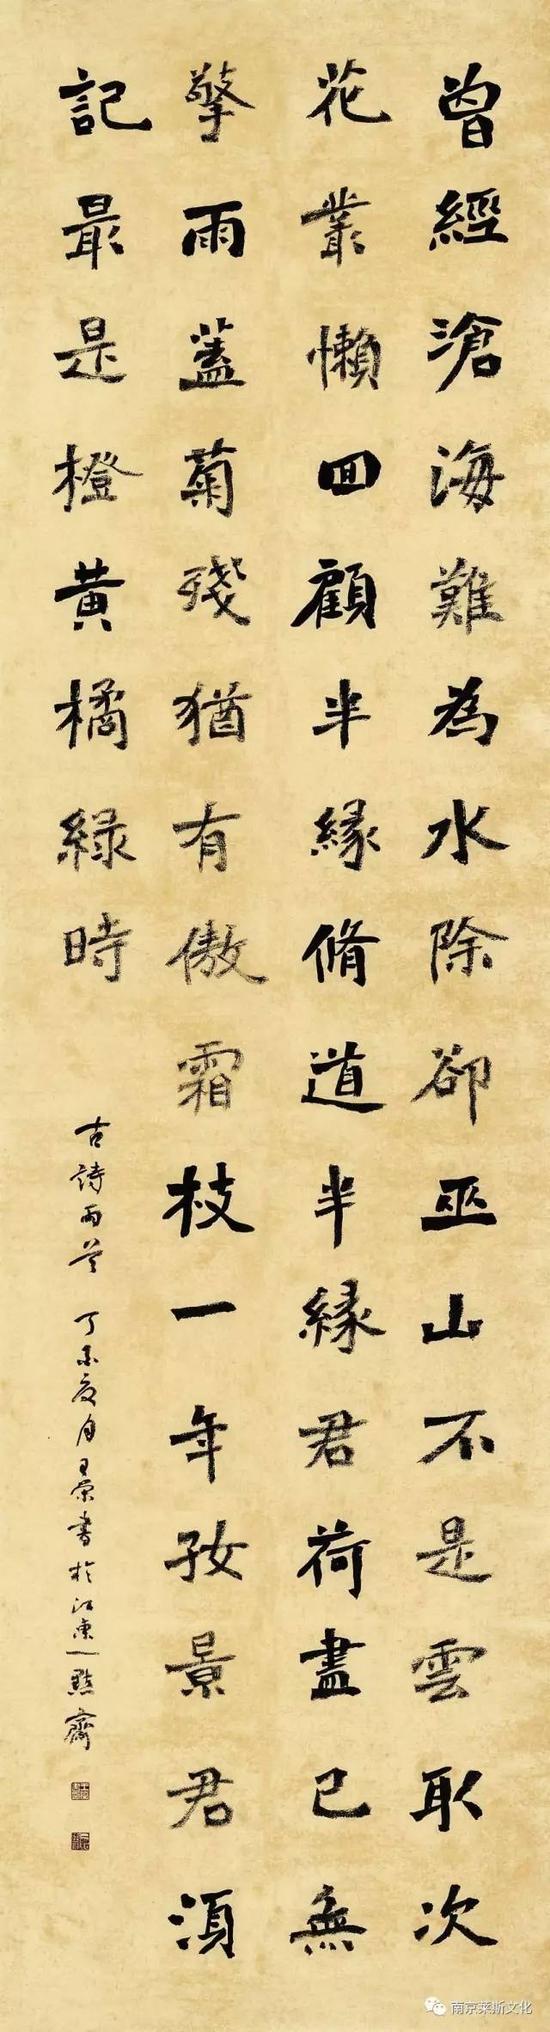 曾經滄海難為水除卻巫山不是雲取次
花叢懶回顧半緣脩道半緣君荷盡已無
擎雨蓋菊殘猶有傲霜枝一年孜景君須
記最是橙黃橘綠時
古詩兩首 丁未夏月王榮書於江東一點齋
南京莱斯文化